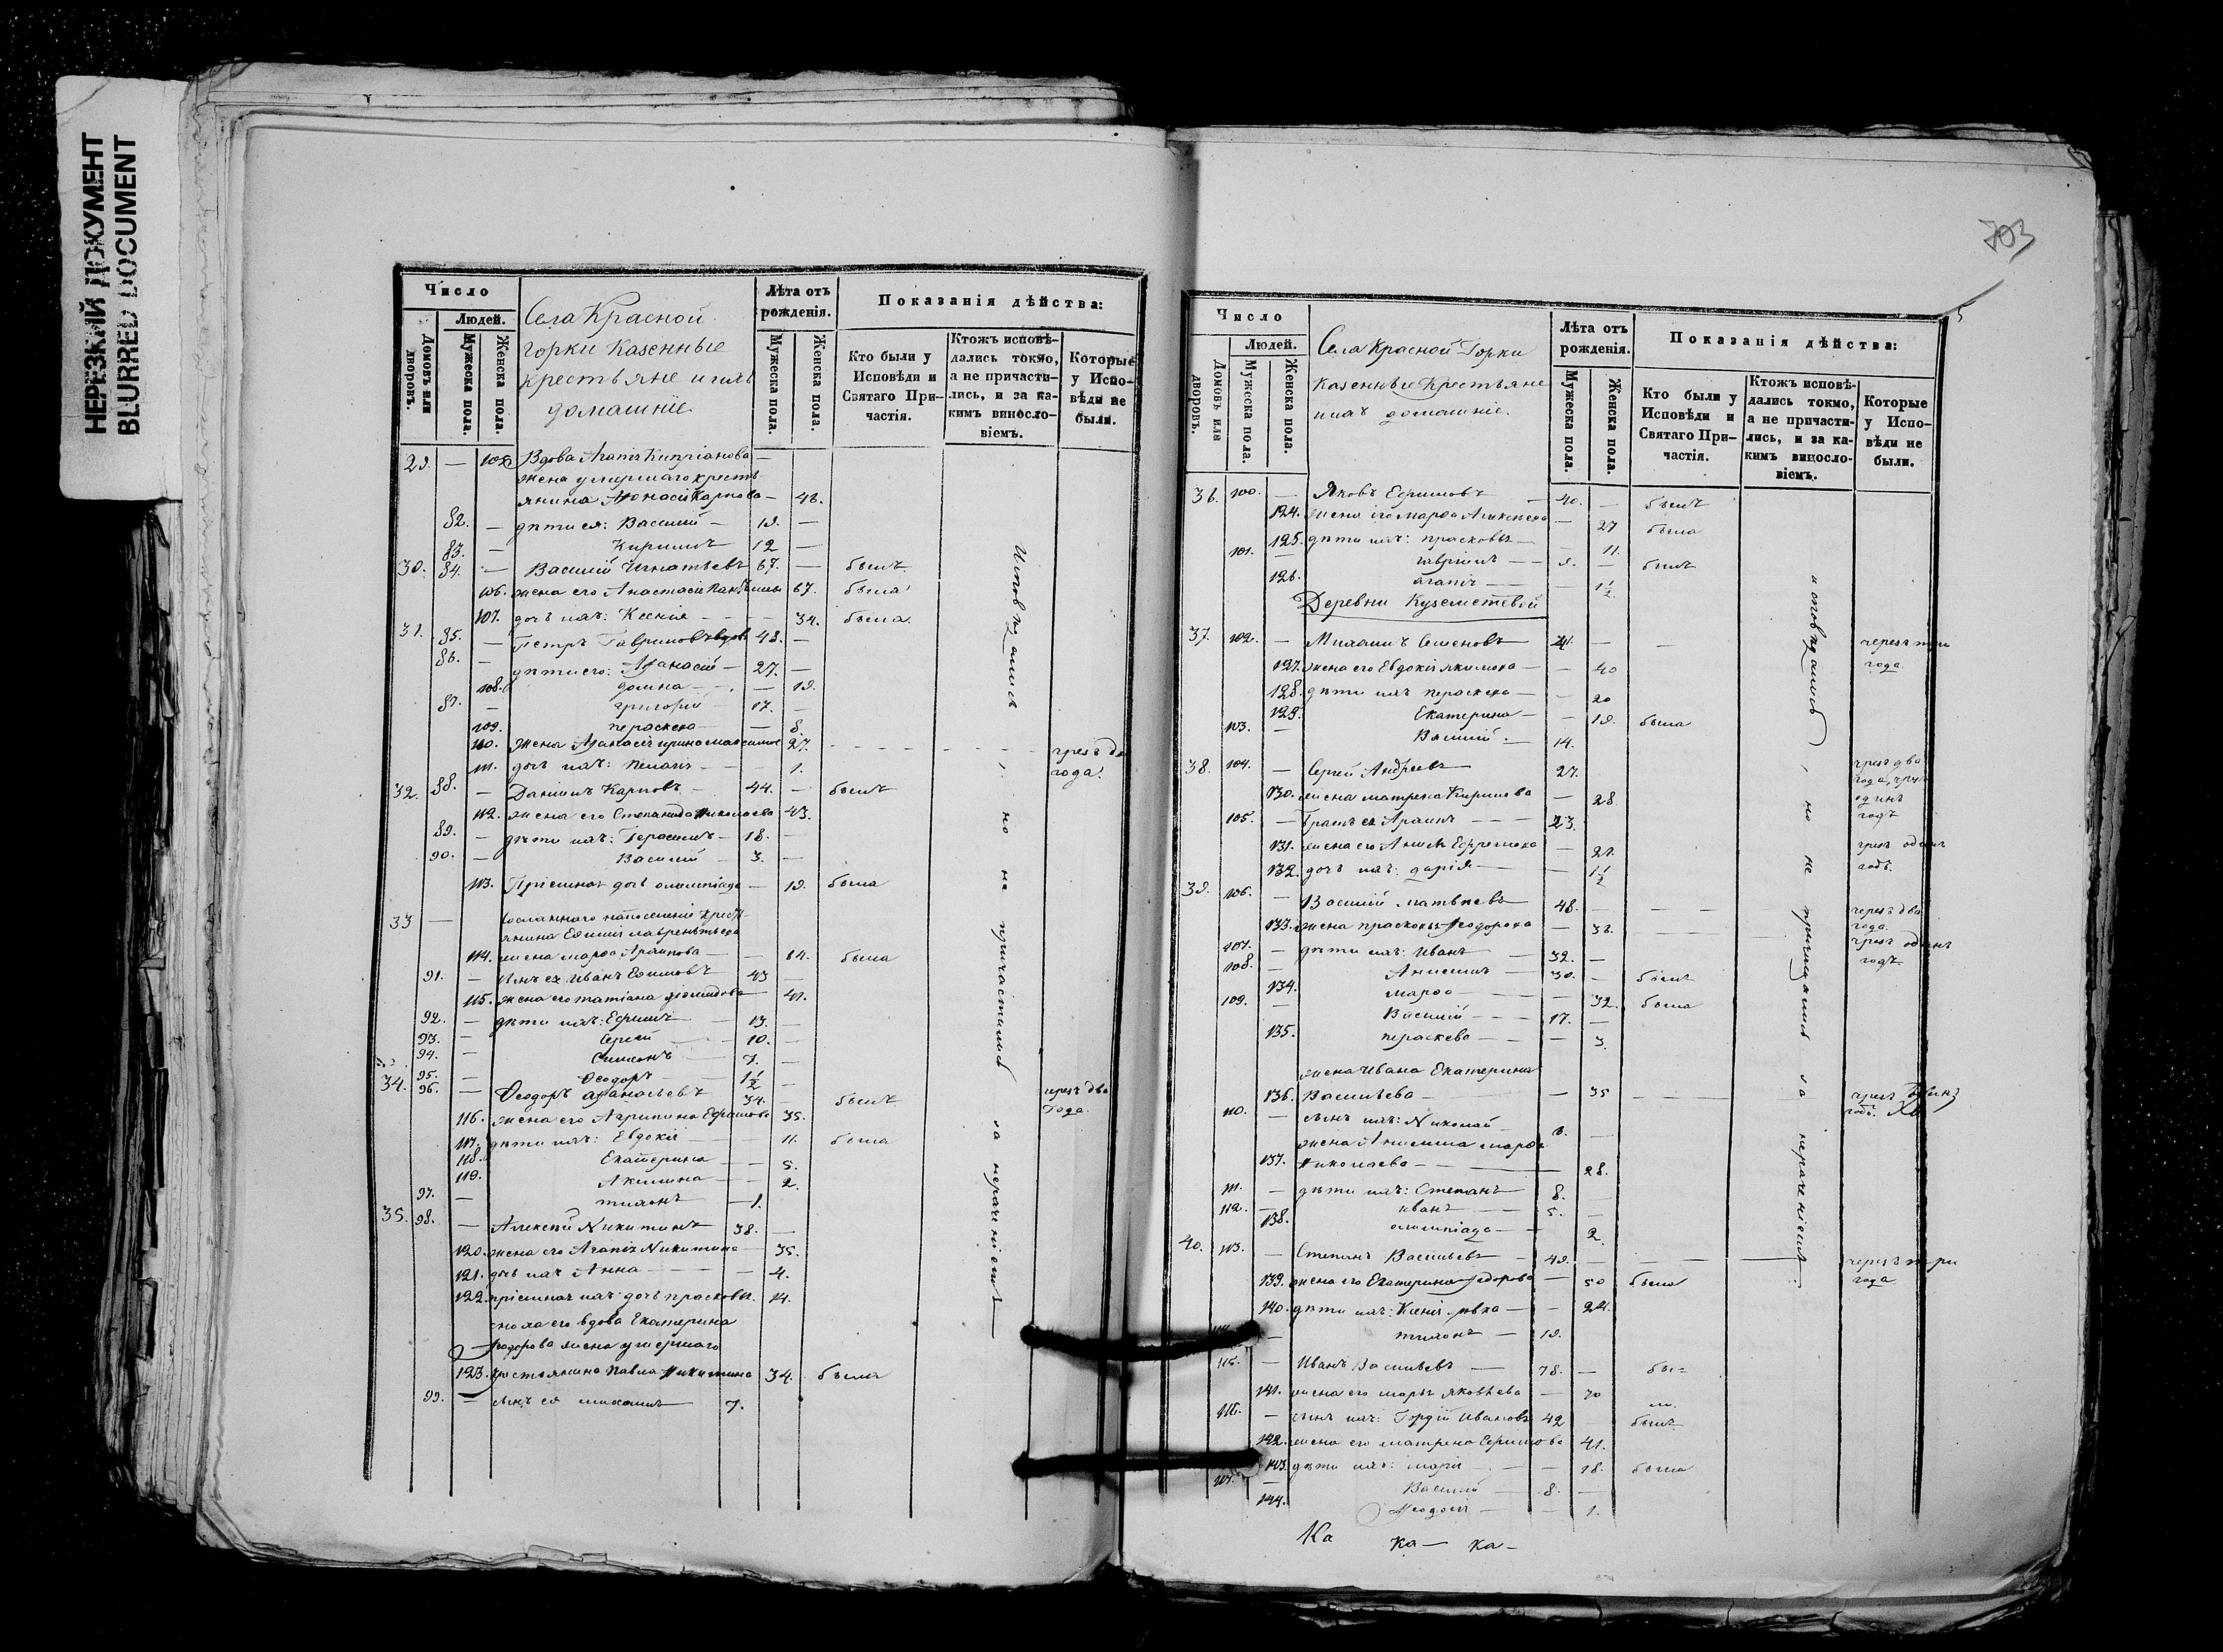 НЕРЕЗКИЙ ДОКУМЕНТ
BLURRED DOCUMENT
703
Число
Людей.
Домовъ или дворовъ.
Мужеска пола.
Женска пола.
Села Красной
горки казенные
крестьяне и ихъ
домашніе
Лѣта отъ рожденія.
Мужеска пола.
Женска пола.
Показанія дѣйства:
Кто были у Исповѣди и Святаго Причастія.
Ктожъ исповѣдались токмо, а не причастились, и за какимъ винословіемъ.
Которые у Исповѣди не были.
29. — Вдова Агапія Кипріанова —
жена умершаго кресть
янина Карпова — 48.
82. — дѣти ея: Василій — 19. —
83. — Кириллъ 12 —
30. 84. — Василій Игнатьевъ 67. — былъ
106. жена его Анастасія 67. была
107. дочь ихъ: Ксенія — 34. была
31. 85. — Петръ Гавриловъ вдовъ 48. —
86. — дѣти его: Афанасій — 27. —
108. домна — — 19.
87. — григорій — 17. —
109. пераскева — — 8.
110. жена Афанасія ирина 27. чрезъ два
111. дочь ихъ: Пелагія — 1. года.
32. 88. — Даніилъ Карповъ — 44. — былъ
112. жена его Степанида Николаева 43.
89. — дѣти ихъ: Герасимъ — 18. —
90. — Василій — 3. —
113. Пріемная дочь олимпіада — 19. была
33 — сосланного на поселеніе крест
янина лаврентьева
114. жена марѳа Архипова — 64. была
91. — сынъ ея Иванъ 43 —
115. жена его татіана 41.
92. — дѣти ихъ: Ефимъ — 13. —
93. — Сергей — 10. —
94. — Симеонъ — 7. —
95. — Ѳеодоръ — 1½ —
34. 96. — Ѳеодоръ афанасьевъ 34. — былъ чрезъ два
116. жена его Агрипина Ефимова 35. года.
117. дѣти ихъ: Евдокія — 11. была
118. Екатерина — — 5.
119. Акилина — — 2.
97. — тихонъ — 1.
35. 98. — Алексѣй Никитинъ 38. —
120. жена его Агапія Никитина — 35.
121. дочь ихъ Анна — — — 4.
122. пріемная ихъ дочь прасковья. 14.
сноха его вдова Екатерина
Ѳеодорова жена умершаго
123. крестьянина Павла Никитина 34. была
99. — сынъ ея михаилъ — 7.
Исповѣдались, но не причастились за нераченіемъ
Число
Людей.
Домовъ или дворовъ.
Мужеска пола.
Женска пола.
Села Красной Горки
казенные Крестьяне
и ихъ домашніе.
Лѣта отъ рожденія.
Мужеска пола.
Женска пола.
Показанія дѣйства:
Кто были у Исповѣди и Святаго Причастія.
Ктожъ исповѣдались токмо, а не причастились, и за какимъ винословіемъ.
Которые у Исповѣди не были.
36. 100. — Яковъ Ефимовъ — 40. — былъ
124. жена его марѳа Алексѣева — 27 была
125. дѣти ихъ: прасковья — 11.
101. — гавріилъ — — 9. — былъ
126. агапія — — 1½.
Деревни
37. 102. — Михаилъ Семеновъ — 41. — — черезъ три
127. жена его Евдокія якимова — — 40 года.
128. дѣти ихъ пераскева — — 20
129. Екатерина — — 19. была
103. — Василій — 14.
38. 104. — Сергей Андреевъ — 27. чрезъ два
года, чрезъ
130. жена матрена Кирилова — 28 одинъ
годъ
105. — Братъ ея Архипъ — — — 23.
131. жена его Анисья Ефремова — 21. чрезъ одинъ
132. дочь ихъ: дарія — — 1½ годъ.
39. 106. — Василій матвѣевъ — 48. — — — черезъ два
133. жена прасковья Ѳеодорова — 38. года.
107. — дѣти ихъ: Иванъ — 32. — чрезъ одинъ
108. — Анисимъ — 30. — былъ годъ.
134. марѳа — 32. была
109. — Василій — — — 17. —
135. пераскева — — — 3.
жена Ивана Екатерина
136. Васильева — — 35 — — — чрезъ одинъ
110. — сынъ ихъ: Николай — 6. — годъ.
жена Анисима марѳа
137. Николаева — — — 28.
111. — дѣти ихъ: Степанъ 8. —
112. — иванъ — 5. —
138. олимпіада — — 2.
40. 113. — Степанъ Васильевъ — 49. — — — черезъ три
139. жена его Екатерина Ѳедорова — 50 была года
140. дѣти ихъ: Ксенія дѣвка — — 24.
— тихонъ — 19.
115. — Иванъ Васильевъ — 78. — бы-
141. жена его марья яковлева — 70
116. — сынъ ихъ: Гордій Ивановъ 42 — былъ
142. жена его матрена Ефимова 41.
143. дѣти ихъ: марія — — 18. была
117. — Василій — 8. —
144. Ѳеодосія — — 1.
исповѣдались, но не причащались за нераченіемъ
Ка ка — ка —